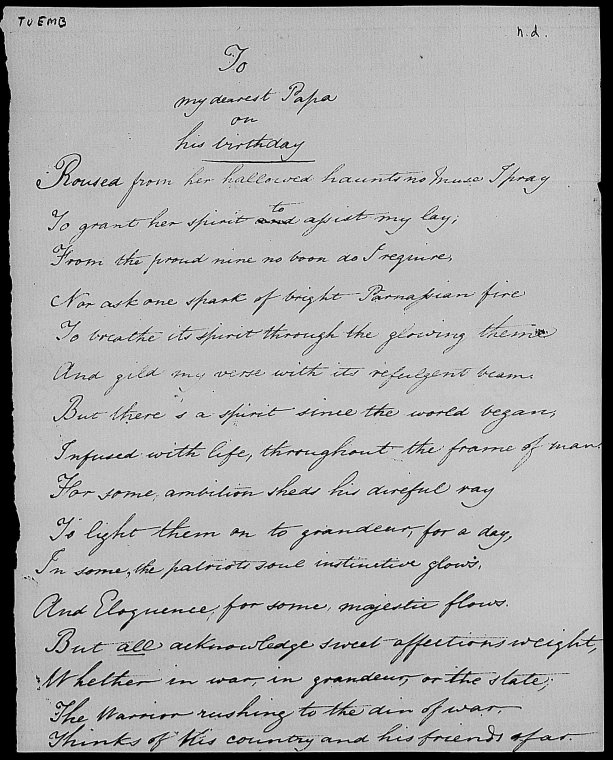 TU EMB
n.d.
To
my dearest Papa
on
his birthday
Roused from her hallowed haunts no Muse I pray
To grant her spirit and to assist my lay;
From the proud nine no boon do I require,
Nor ask one spark of bright Parnassian fire
To breathe its spirit through the glowing theme
And gild my verse with its refulgent beam.
But there's a spirit since the world began,
Infused with life, throughout the frame of man.
For some, ambition sheds his direful ray
To light them on to grandeur, for a day,
In some, the patriots soul instinctive glows,
And Eloquence, for some, majestic flows.
But all acknowledge sweet affections weight,
Whether in war, in grandeur, or the state;
The Warrior rushing to the din of war
Thinks of his country and his friends afar